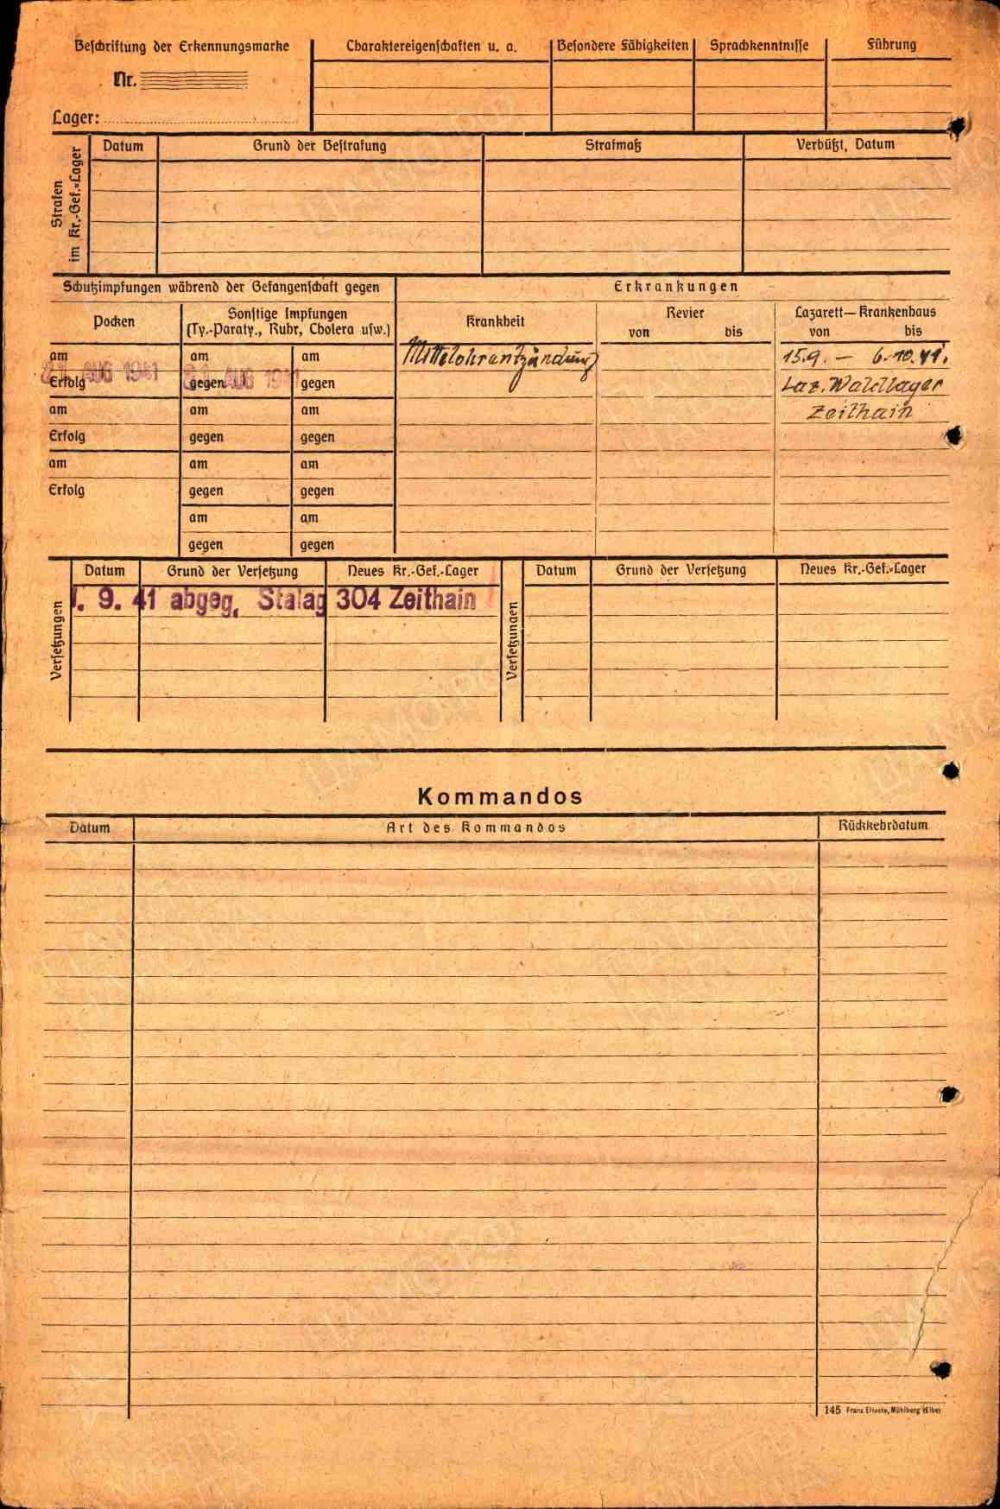 Beschriftung der Erkennungsmarke
Nr.
Lager:
Charaktereigenschaften u. a.
Besondere Fähigkeiten
Sprachkenntnisse
Führung
Strafen
im Kr.-Gef.-Lager
Datum
Grund der Bestrafung
Strafmaß
Verbüßt, Datum
Schutzimpfungen während der Gefangenschaft gegen
Erkrankungen
Pocken
Sonstige Impfungen
(Ty.-Paraty., Ruhr, Cholera usw.)
Krankheit
Revier
von bis
Lazarett—Krankenhaus
von bis
am am am
AUG 1941 AUG
Erfolg gegen gegen
Mittelohrentzündung
15.9. – 6.10.41.
Laz. Waldlager
Zeithain
am am am
Erfolg gegen gegen
am am am
Erfolg gegen gegen
am am
gegen gegen
Versetzungen
Datum Grund der Versetzung Neues Kr.-Gef.-Lager
. 9. 41 abgeg. Stalag 304 Zeithain
Versetzungen
Datum Grund der Versetzung Neues Kr.-Gef.-Lager
Kommandos
Datum Art des Kommandos Rückkehrdatum
145 Franz Mühlberg (Elbe)